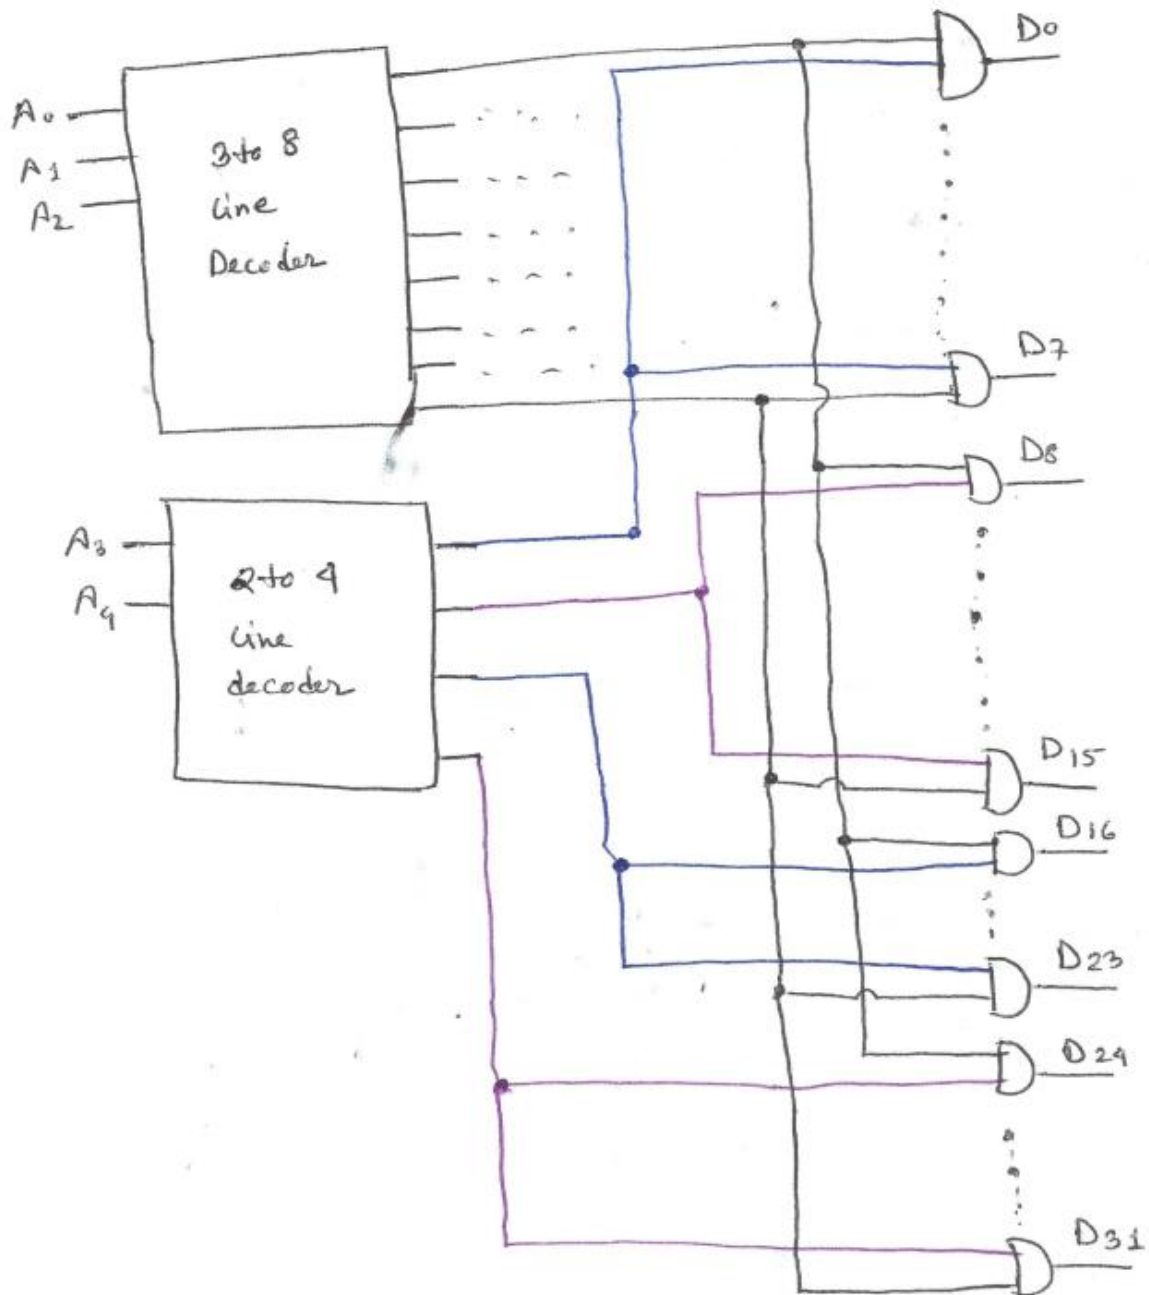 A0
A1
A2
3 to 8
Line
Decoder
D0
D7
D8
A3
A4
2 to 4
Line
decoder
D15
D16
D23
D24
D31